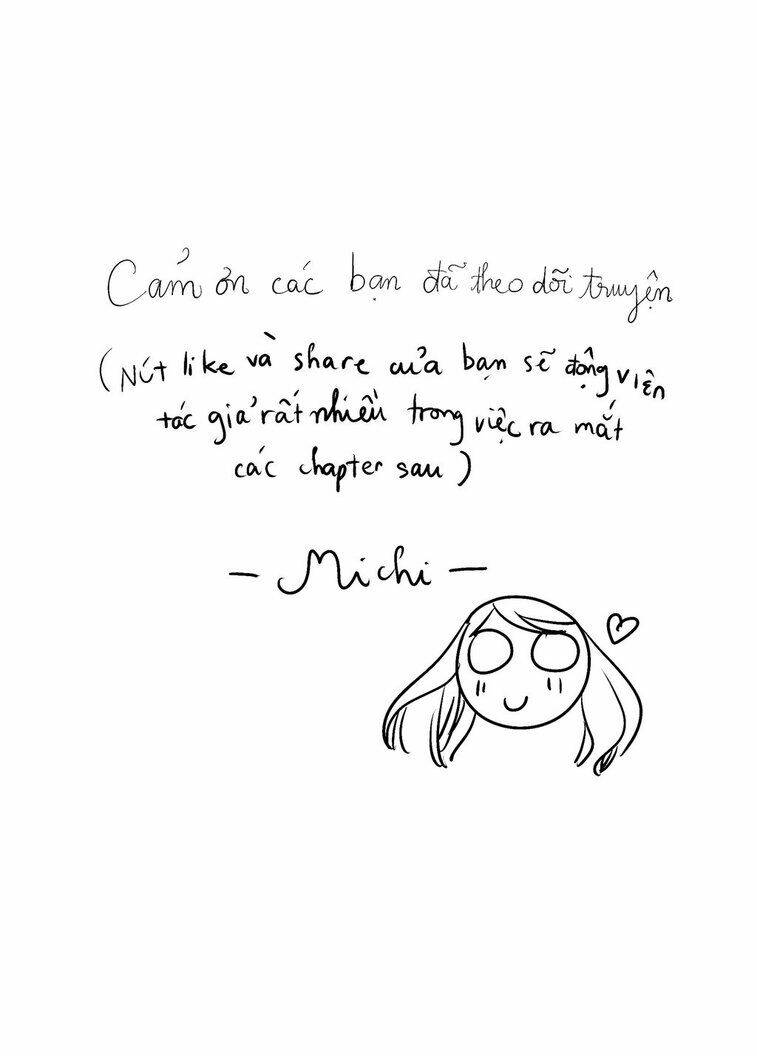 Cảm ơn các bạn đã theo dõi truyện
(Nút like và share của bạn sẽ động viên
tác giả rất nhiều trong việc ra mắt
các chapter sau)
- Michi -